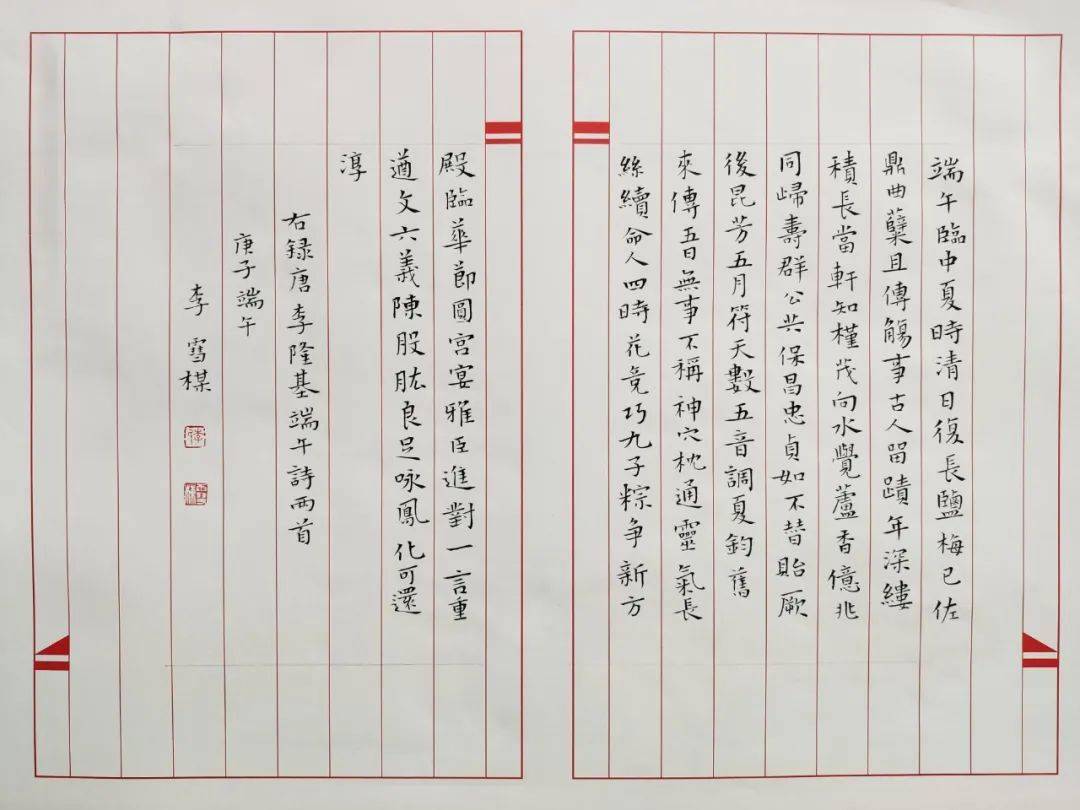 端午臨中夏時清日復長鹽梅已佐
鼎曲蘖且傳觴事古人留蹟年深縷
積長當軒知槿茂向水覺蘆香億兆
同歸壽群公共保昌忠貞如不替貽厥
後昆芳五月符天數五音調夏鈞舊
來傳五日無事不稱神穴枕通靈氣長
絲續命人四時花竞巧九子粽争新方
殿臨華節圓宮宴雅臣進對一言重
遒文六義陳股肱良足咏鳳化可還
淳
右録唐李隆基端午詩两首
庚子端午
李雪楳